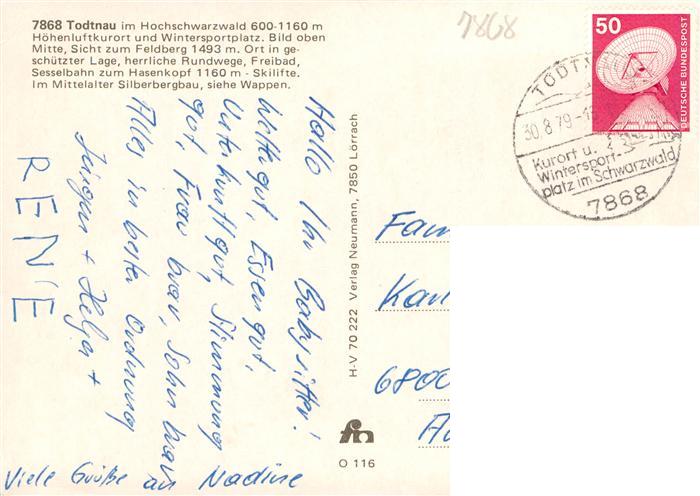 7868 Todtnau im Hochschwarzwald 600-1160 m
Höhenluftkurort und Wintersportplatz. Bild oben
Mitte, Sicht zum Feldberg 1493 m. Ort in ge-
schützter Lage, herrliche Rundwege, Freibad,
Sesselbahn zum Hasenkopf 1160 m - Skilifte.
Im Mittelalter Silberbergbau, siehe Wappen.
7868
50
DEUTSCHE BUNDESPOST
TODTN
30.8.79-18
Kurort u.
Wintersport-
platz im Schwarzwald
7868
Hallo Ihr Babysitter!
Wetter gut, Essen gut,
Unterkunft gut, Stimmung
gut, Frau brav, Sohn brav
Alles in bester Ordnung
Jürgen + Helga +
RENÉ
Viele Grüße an Nadine
H-V 70 222 Verlag Neumann, 7850 Lörrach
O 116
Fam
Kar
6800